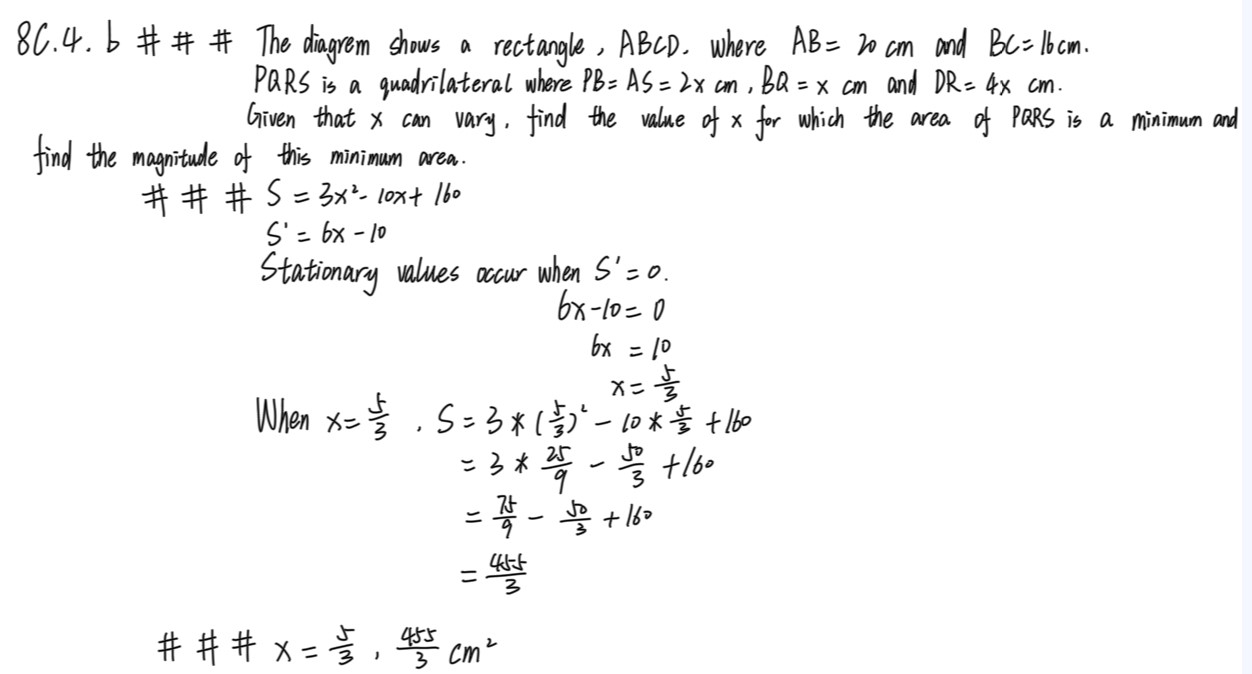 8C.4.b # # # The diagrem shows a rectangle, ABCD. where AB = 20 cm and BC = 16 cm.
PQRS is a quadrilateral where PB = AS = 2x cm, BQ = x cm and DR = 4x cm.
Given that x can vary, find the value of x for which the area of PQRS is a minimum and
find the magnitude of this minimum area.
# # # S = 3x² - 10x + 160
S' = 6x - 10
Stationary values occur when S' = 0.
6x - 10 = 0
6x = 10
x = 5/3
When x = 5/3, S = 3 * (5/3)² - 10 * 5/3 + 160
= 3 * 25/9 - 50/3 + 160
= 75/9 - 50/3 + 160
= 455/3
# # # x = 5/3, 455/3 cm²